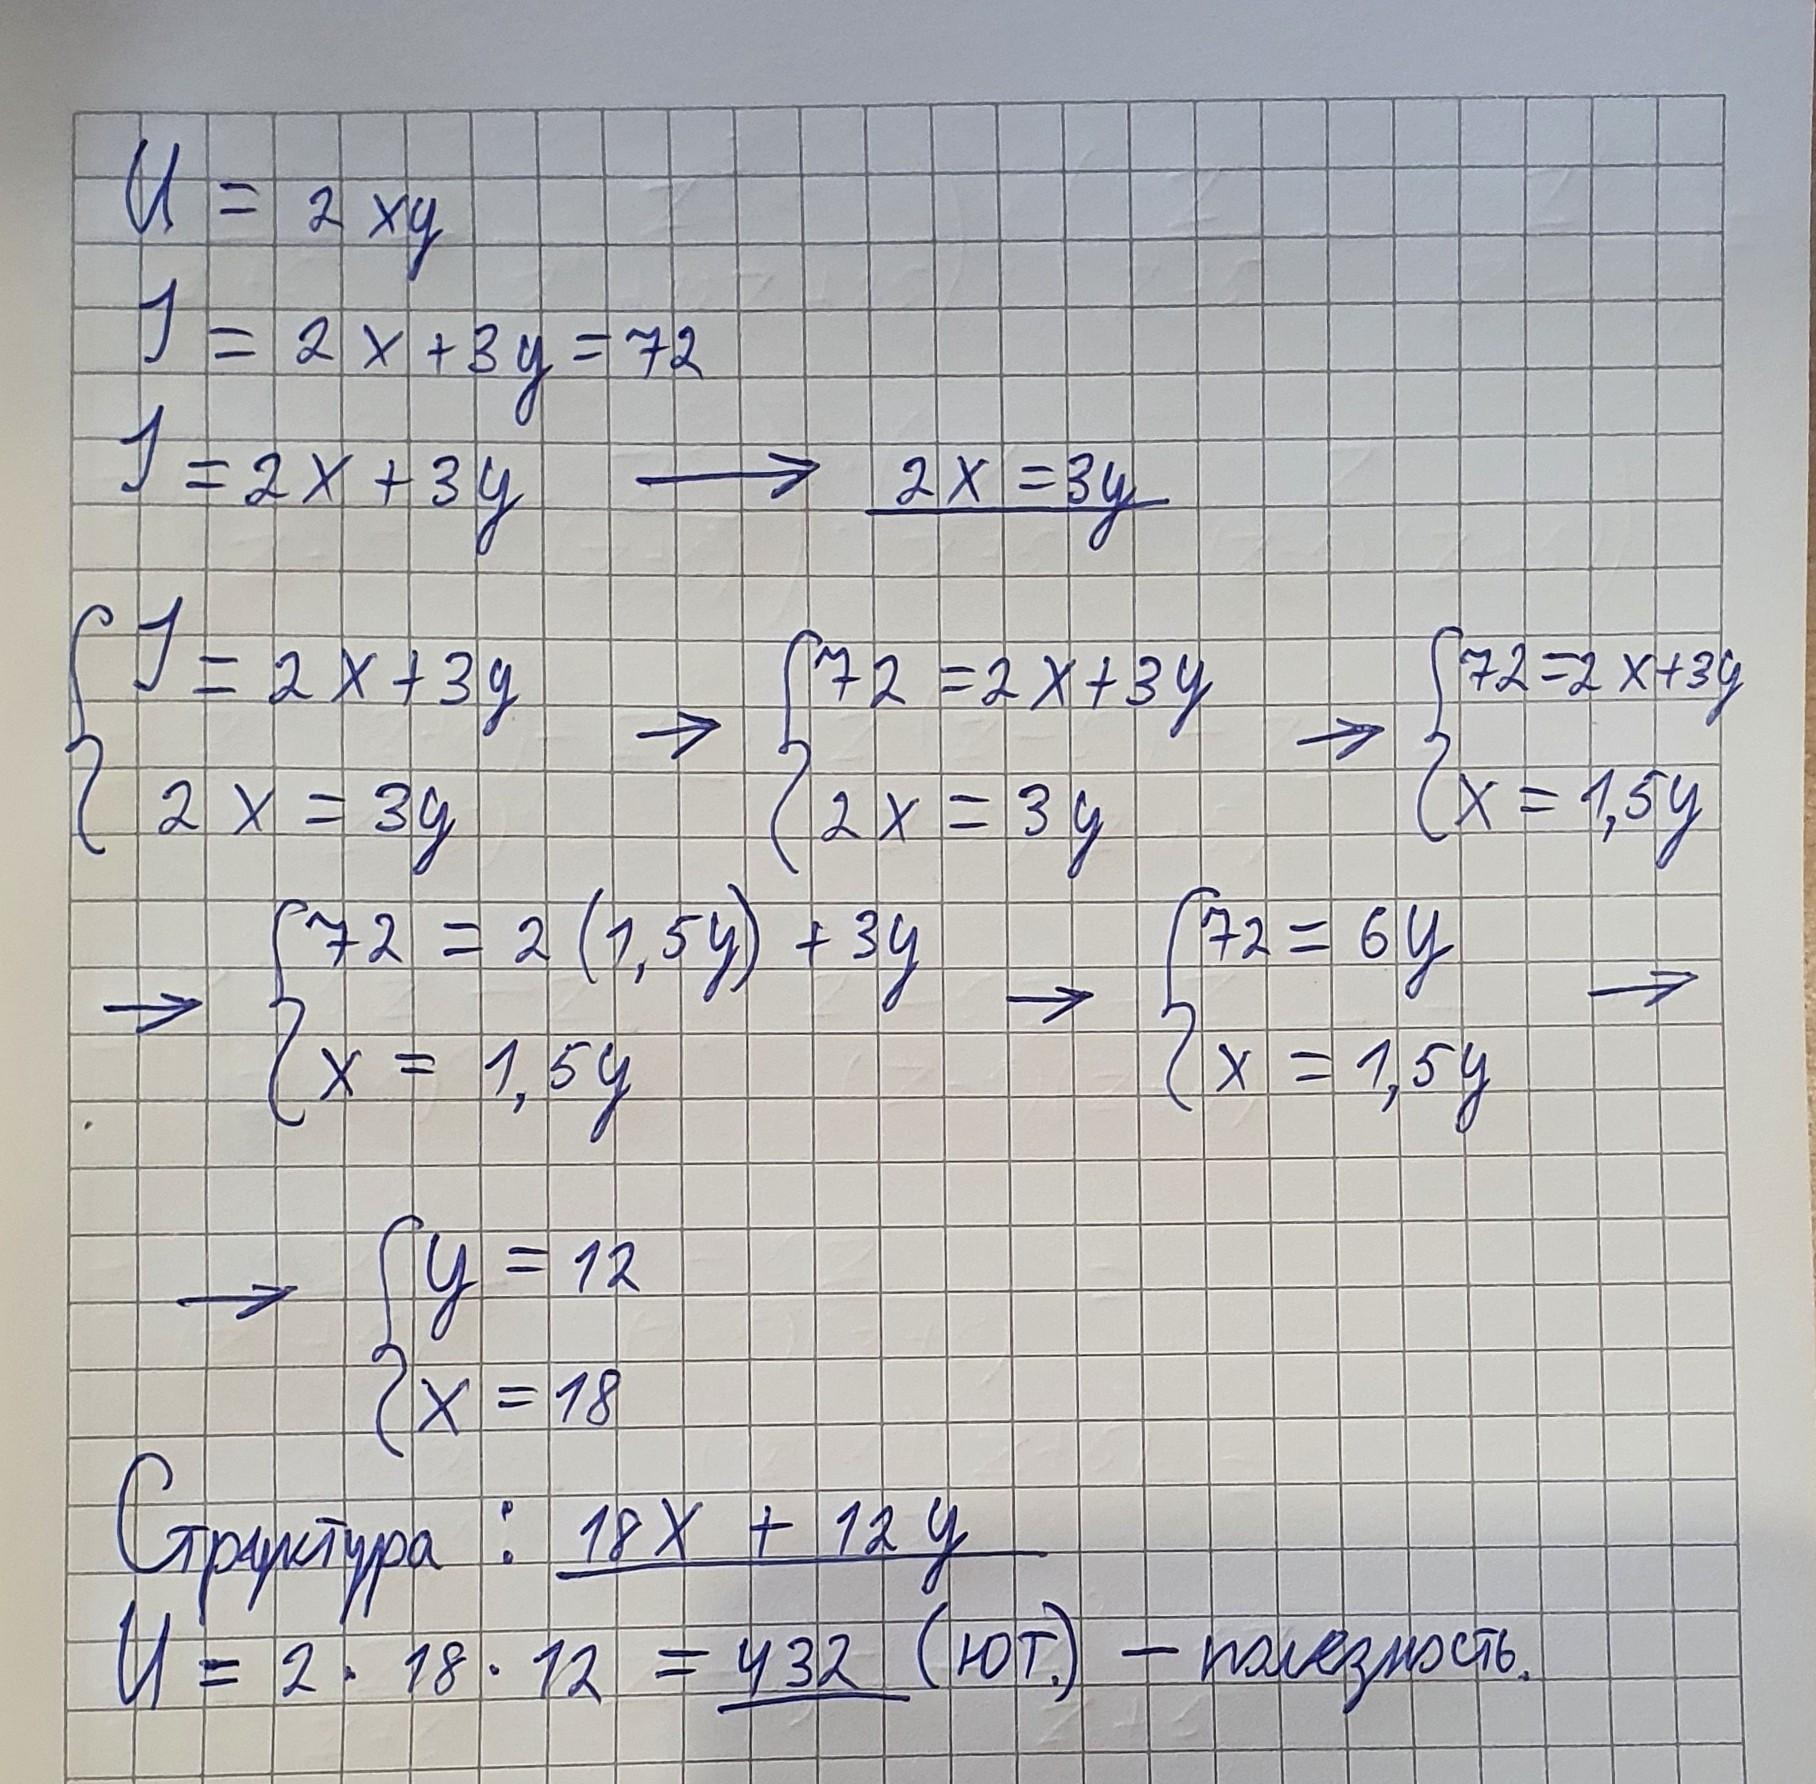 U = 2xy
J = 2x+3y=72
J = 2x+3y → 2x=3y
{ J = 2x+3y → { 72 = 2x+3y → { 72=2x+3y
2x = 3y 2x = 3y x = 1,5y
→ { 72 = 2(1,5y) + 3y → { 72 = 6y →
x = 1,5y x = 1,5y
→ { y = 12
x = 18
Структура : 18x + 12y
U = 2 · 18 · 12 = 432 (ют.) – полезность.